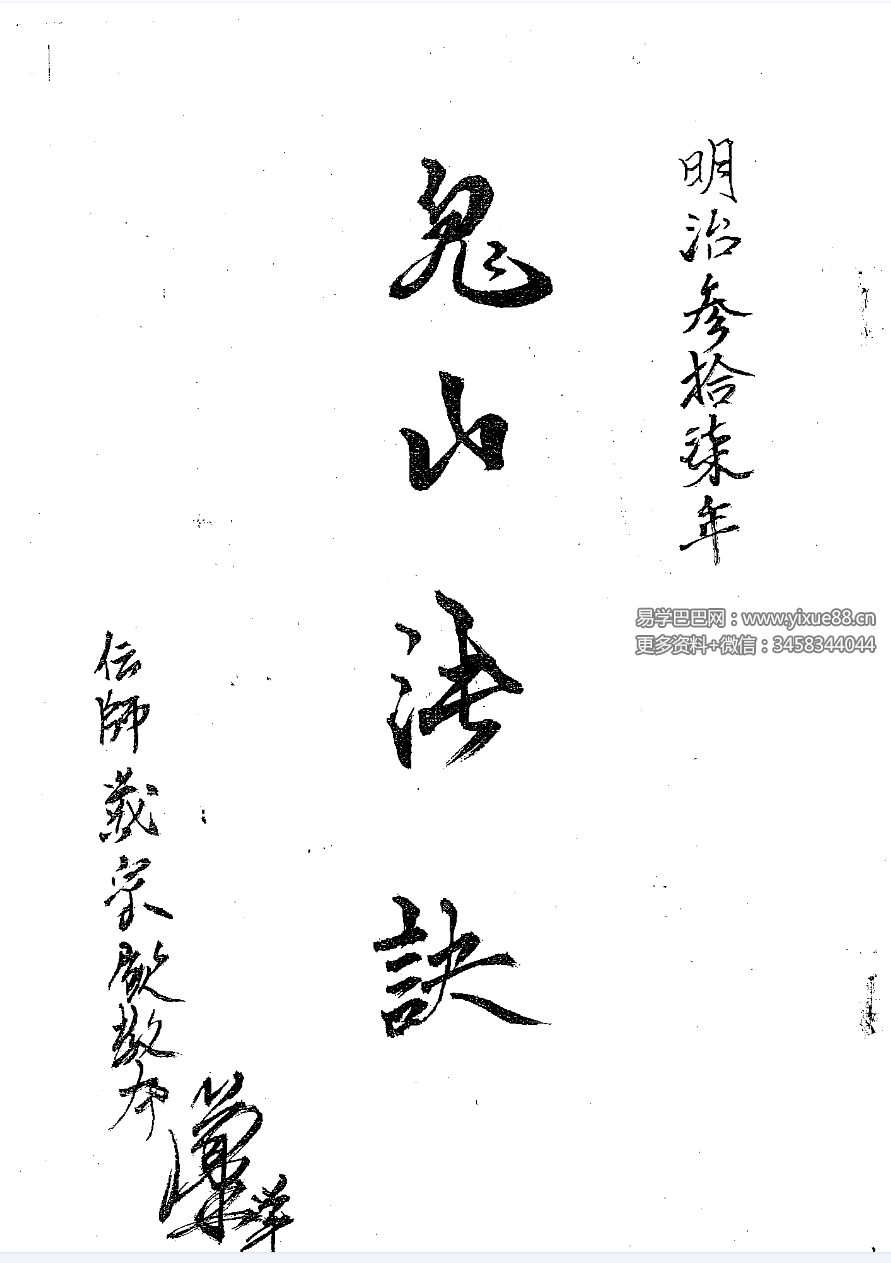 明治参拾柒年
鬼山法訣
伝師戴宗
易学巴巴网：www.yixue88.cn
更多资料+微信：3458344044